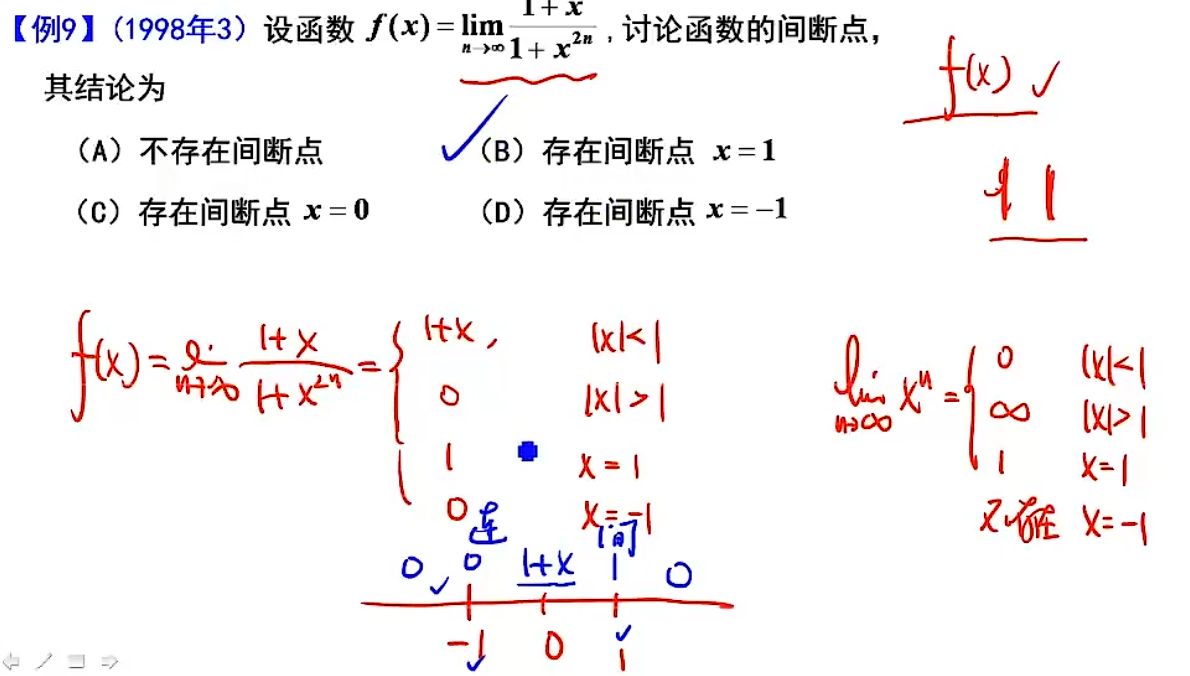 【例9】(1998年3) 设函数 f(x) = lim_{n→∞} (1+x)/(1+x^{2n}) , 讨论函数的间断点,
其结论为
f(x) ✓
(A) 不存在间断点 ✓(B) 存在间断点 x = 1
(C) 存在间断点 x = 0 (D) 存在间断点 x = −1
-1 1
f(x) = lim_{n→∞} (1+x)/(1+x^{2n}) = { 1+x, |x|<1
0 |x|>1
1 x = 1
0 x = -1
lim_{n→∞} x^n = { 0 |x|<1
∞ |x|>1
1 x=1
不存在 x=-1
连 间
0 0 1+x 1 0
-1 0 1